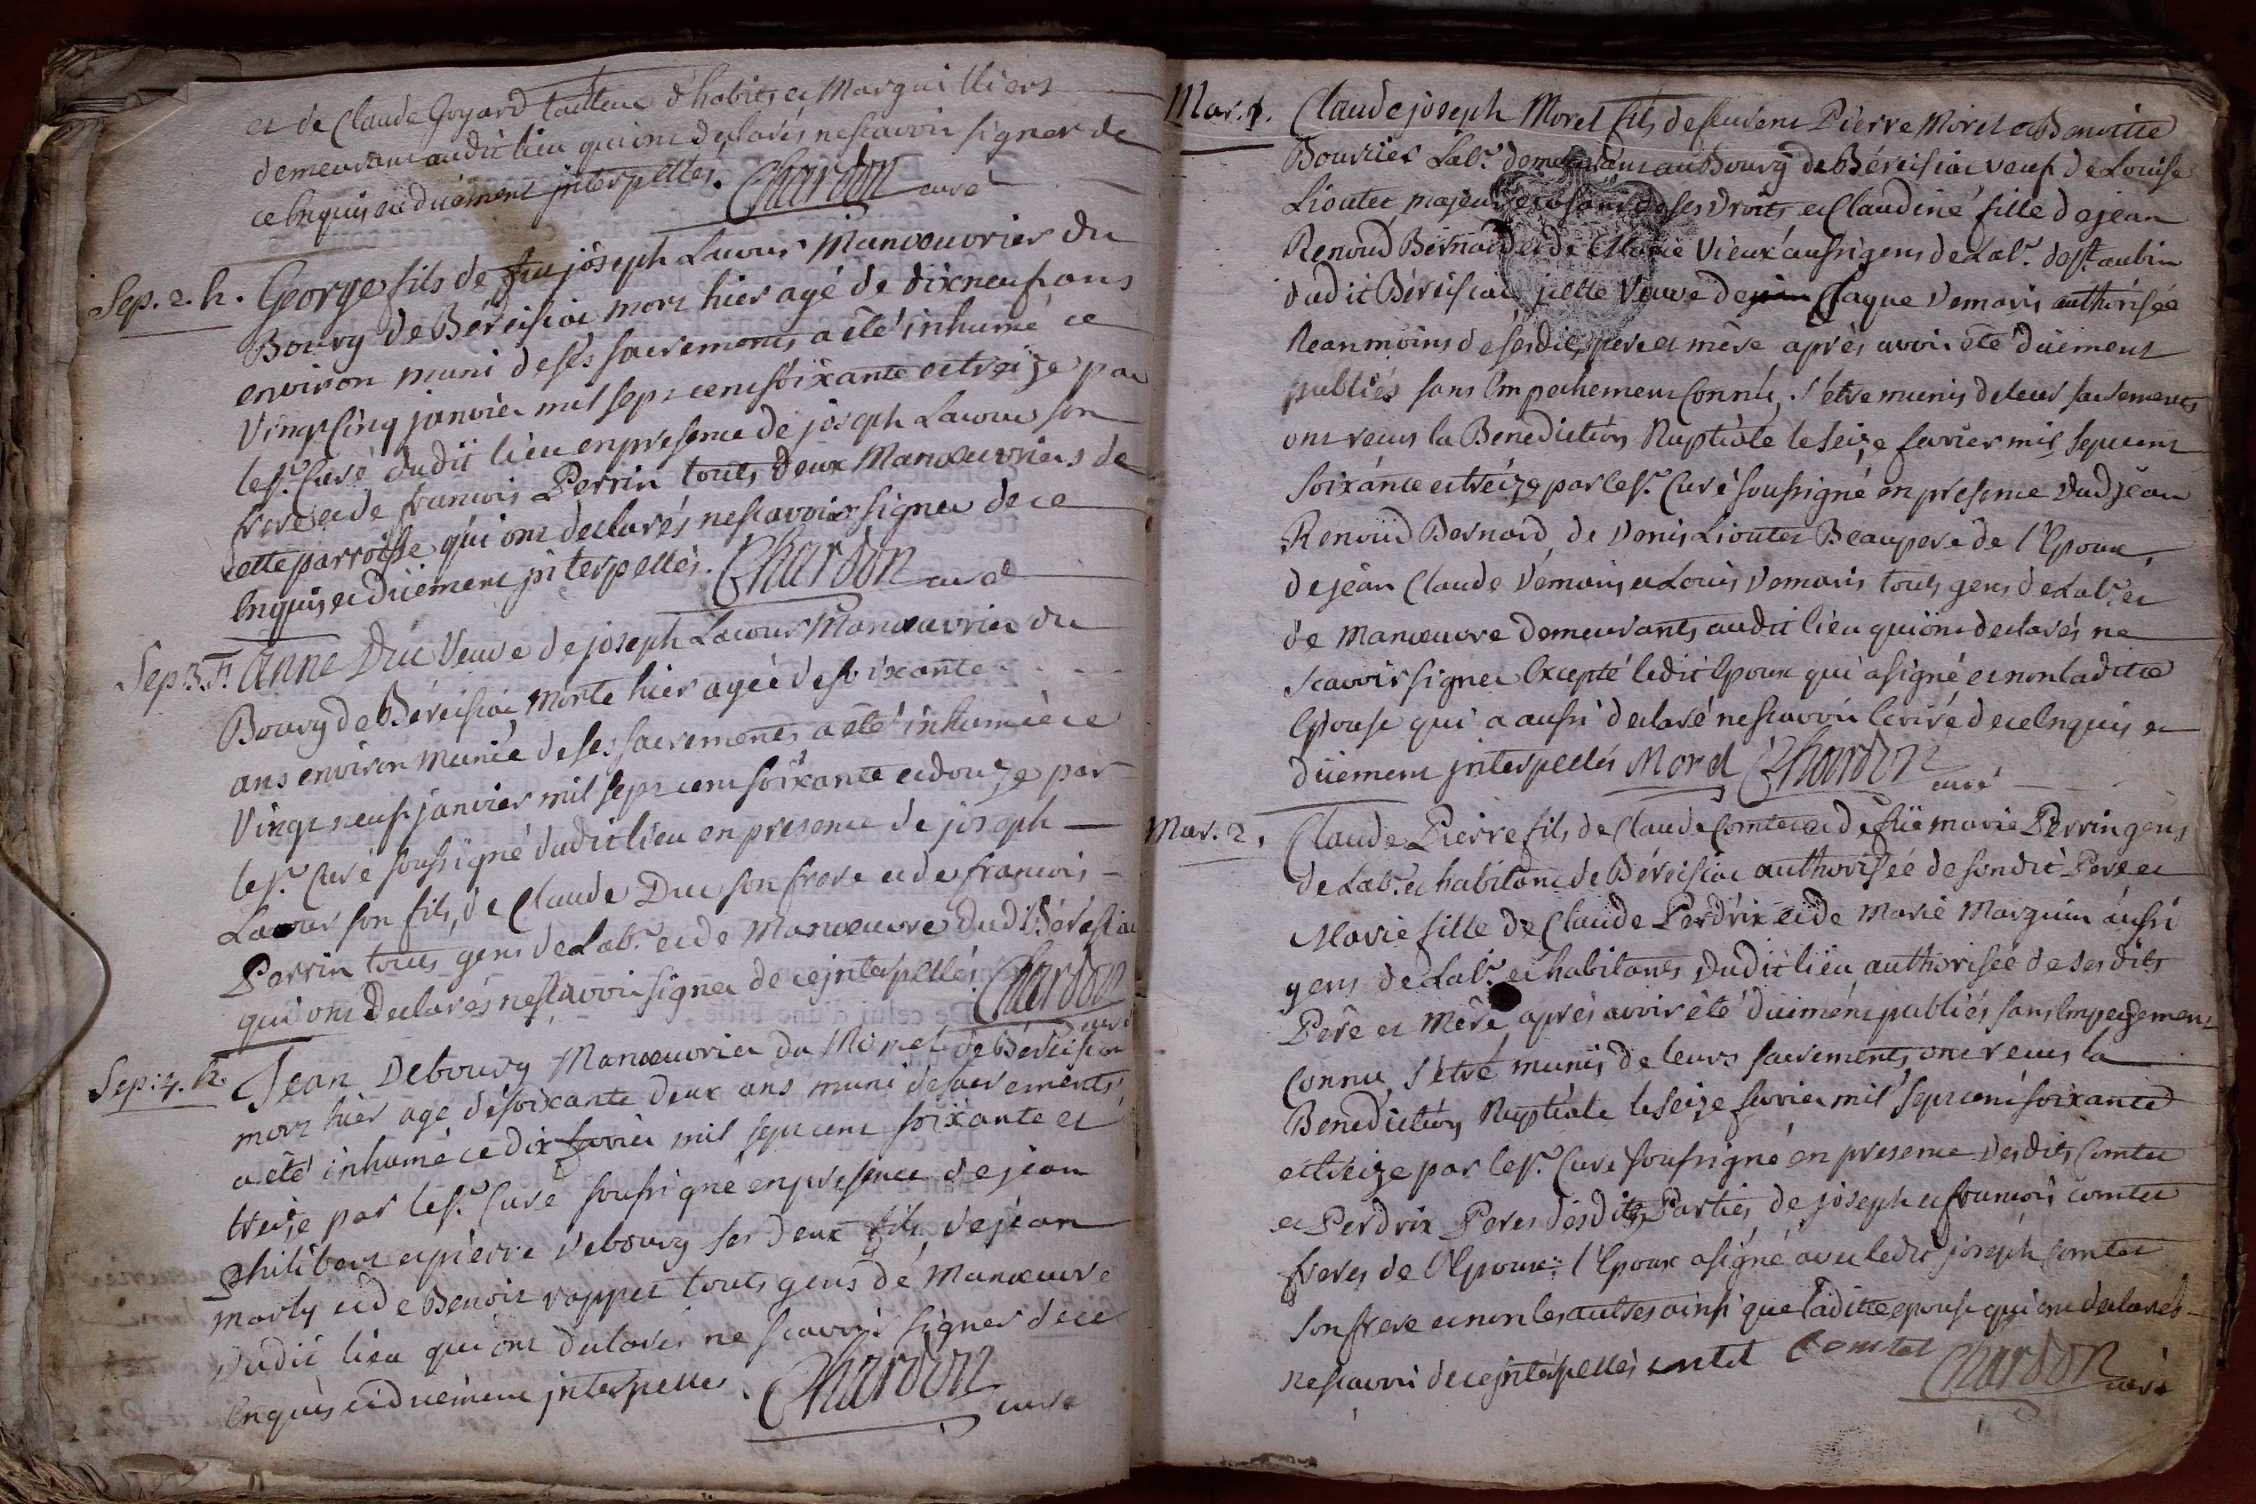 et de Claude Goyard tailleur d'habits et Marguilliers
demeurant audit lieu qui ont declarés ne scavoir signer de
ce Enquis et duëment interpellés. Chardon curé
Sep. 2. h. George fils de feu joseph Lacour Manoeuvrier du
Bourg de Béréisiat mort hier agé de dixneuf ans
environ muni de ses sacrements a été inhumé ce
vingt cinq janvier mil sept cent soixante et treize par
le sr. Curé dudit lieu en presence de joseph Lacour son
frere et de francois Perrin touts deux Manoeuvriers de
cette parroisse qui ont declarés ne scavoir signer de ce
Enquis et duëment interpellés. Chardon curé
Sep. 3. F. Anne Duc Veuve de joseph Lacour Manoeuvrier du
Bourg de Béréisiat Morte hier agée de soixante
ans environ Munie de ses sacrements a été inhumée ce
vingt neuf janvier mil sept cent soixante et douze par
le sr. Curé soussigné dudit lieu en presence de joseph
Lacour son fils, de Claude Duc son frere et de francois
Perrin touts gens de Labr. et de Manoeuvre dudt Béréisiat
qui ont Declarés ne scavoir signer de ce interpellés. Chardon
curé
Sep: 4. h. Jean Debourg Manoeuvrier du Biolet de Béréisiat
mort hier age de soixante deux ans muni de sacrements
a été inhumé ce dix favrier mil sept cent soixante et
treize par le sr. Curé soussigné en presence de jean
philibert et pierre Debourg ses deux fils, de jean
marly et de Benoit rappet touts gens de Manoeuvre
dudit lieu qui ont declarés ne scavoir signer de ce
Enquis et duëment interpellés. Chardon
curé
Mar. 1. Claude joseph Morel fils de feu sieur Pierre Morel et Benoitte
Bouvier Labr. demeurant au Bourg de Béréisiat veuf de Louise
Liouter majeur et usant de ses Droits et Claudine fille de jean
Renoud Bernard et de Marie Vieux aussi gens de Labr. de st. aubin
dudit Béréisiat jcelle Veuve de Claque Demaris authorisée
Neanmoins de ses dits pere et mère après avoir été duëment
publiés sans Empechement Connû, s'étre munis de leur sacrements
ont recus la Benediction Nuptiale le seize favrier mil sept cent
soixante et treize par le sr. Curé soussigné en presence dud jean
Renoud Bernard, de Denis Liouter Beaupere de l'Epoux,
de jean Claude Demaris et Louis Demaris touts gens de Labr. et
de Manoeuvre demeurants audit lieu qui ont declarés ne
scavoir signer Excepté ledit Epoux qui a signé et non laditte
Epouse qui a aussi declaré ne scavoir Ecrire de ce Enquis et
duëment interpellés Morel Chardon
curé
Mar. 2. Claude Pierre fils de Claude Comtet et de füe marie Perrin gens
de Labr. et habitant de Béréisiat authorisée de son dit Pere et
Marie fille de Claude Perdrix et de Marie Marguin aussi
gens de Labr. et habitants dudit lieu authorisée de ses dits
Pere et Mère après avoir été duëment publiés sans Empechement
Connû, s'étre munis de leurs sacrements, ont recus la
Benediction Nuptiale le seize favrier mil sept cent soixante
et treize par le sr. Curé soussigné en presence desdits Comtet
et Perdrix Peres desdites Parties, de joseph et francois comtet
freres de l'Epoux: l'Epoux a signé avec ledit joseph Comtet
son frere et non les aultres ainsi que laditte epouse qui ont declarés
ne scavoir de ce interpellés comtet Comtet Chardon
curé